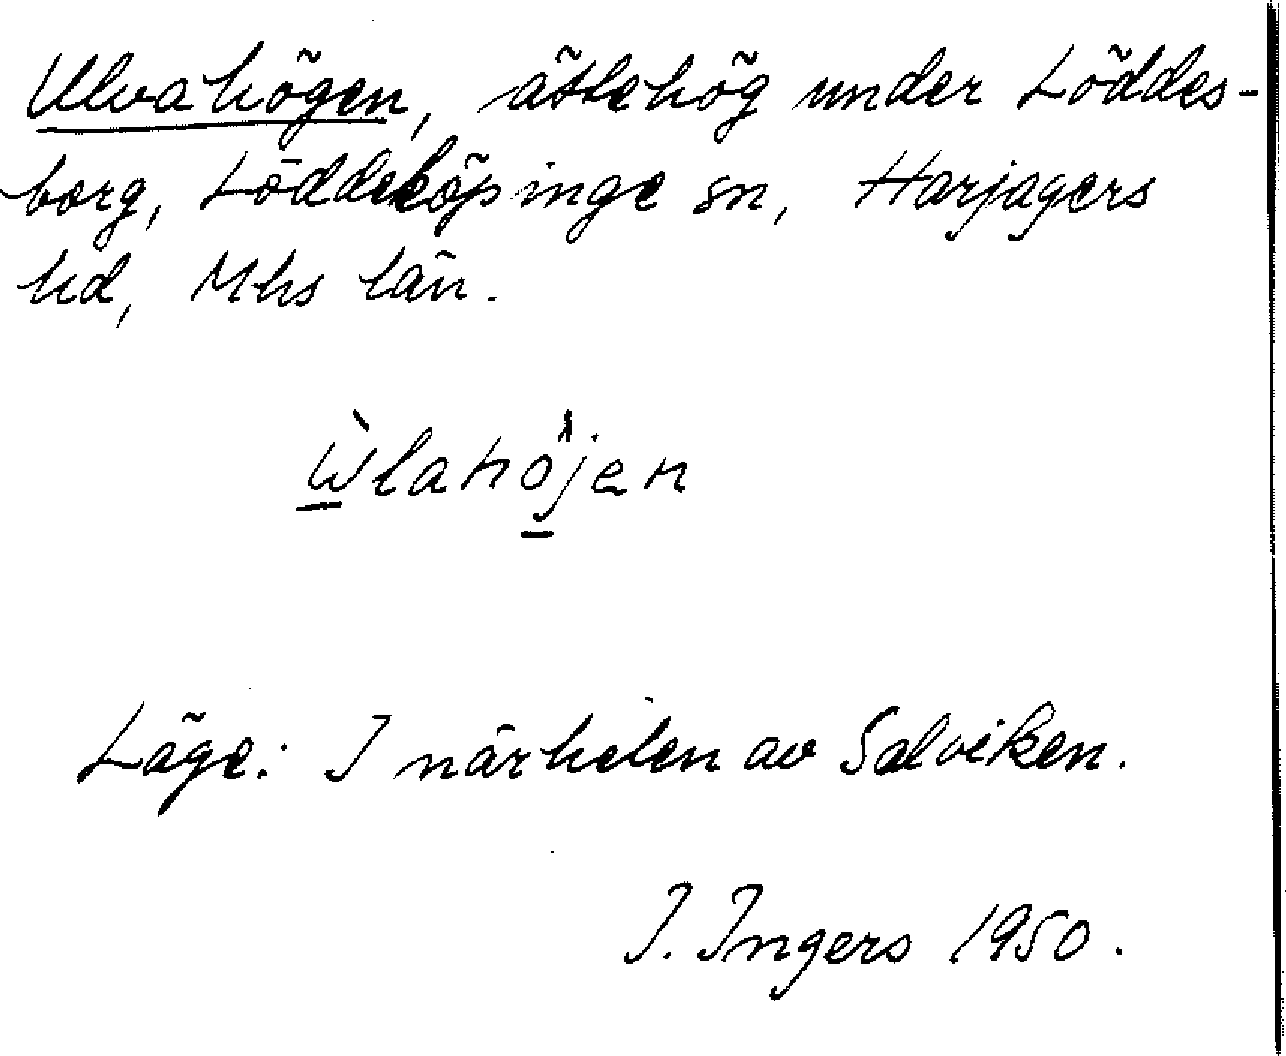 Ulvahögen, ättehög under Löddes-
borg, Löddeköpinge sn, Harjagers
hd, Mhs län.
ẁlahöjen
Läge: I närheten av Salviken.
I. Ingers 1950.